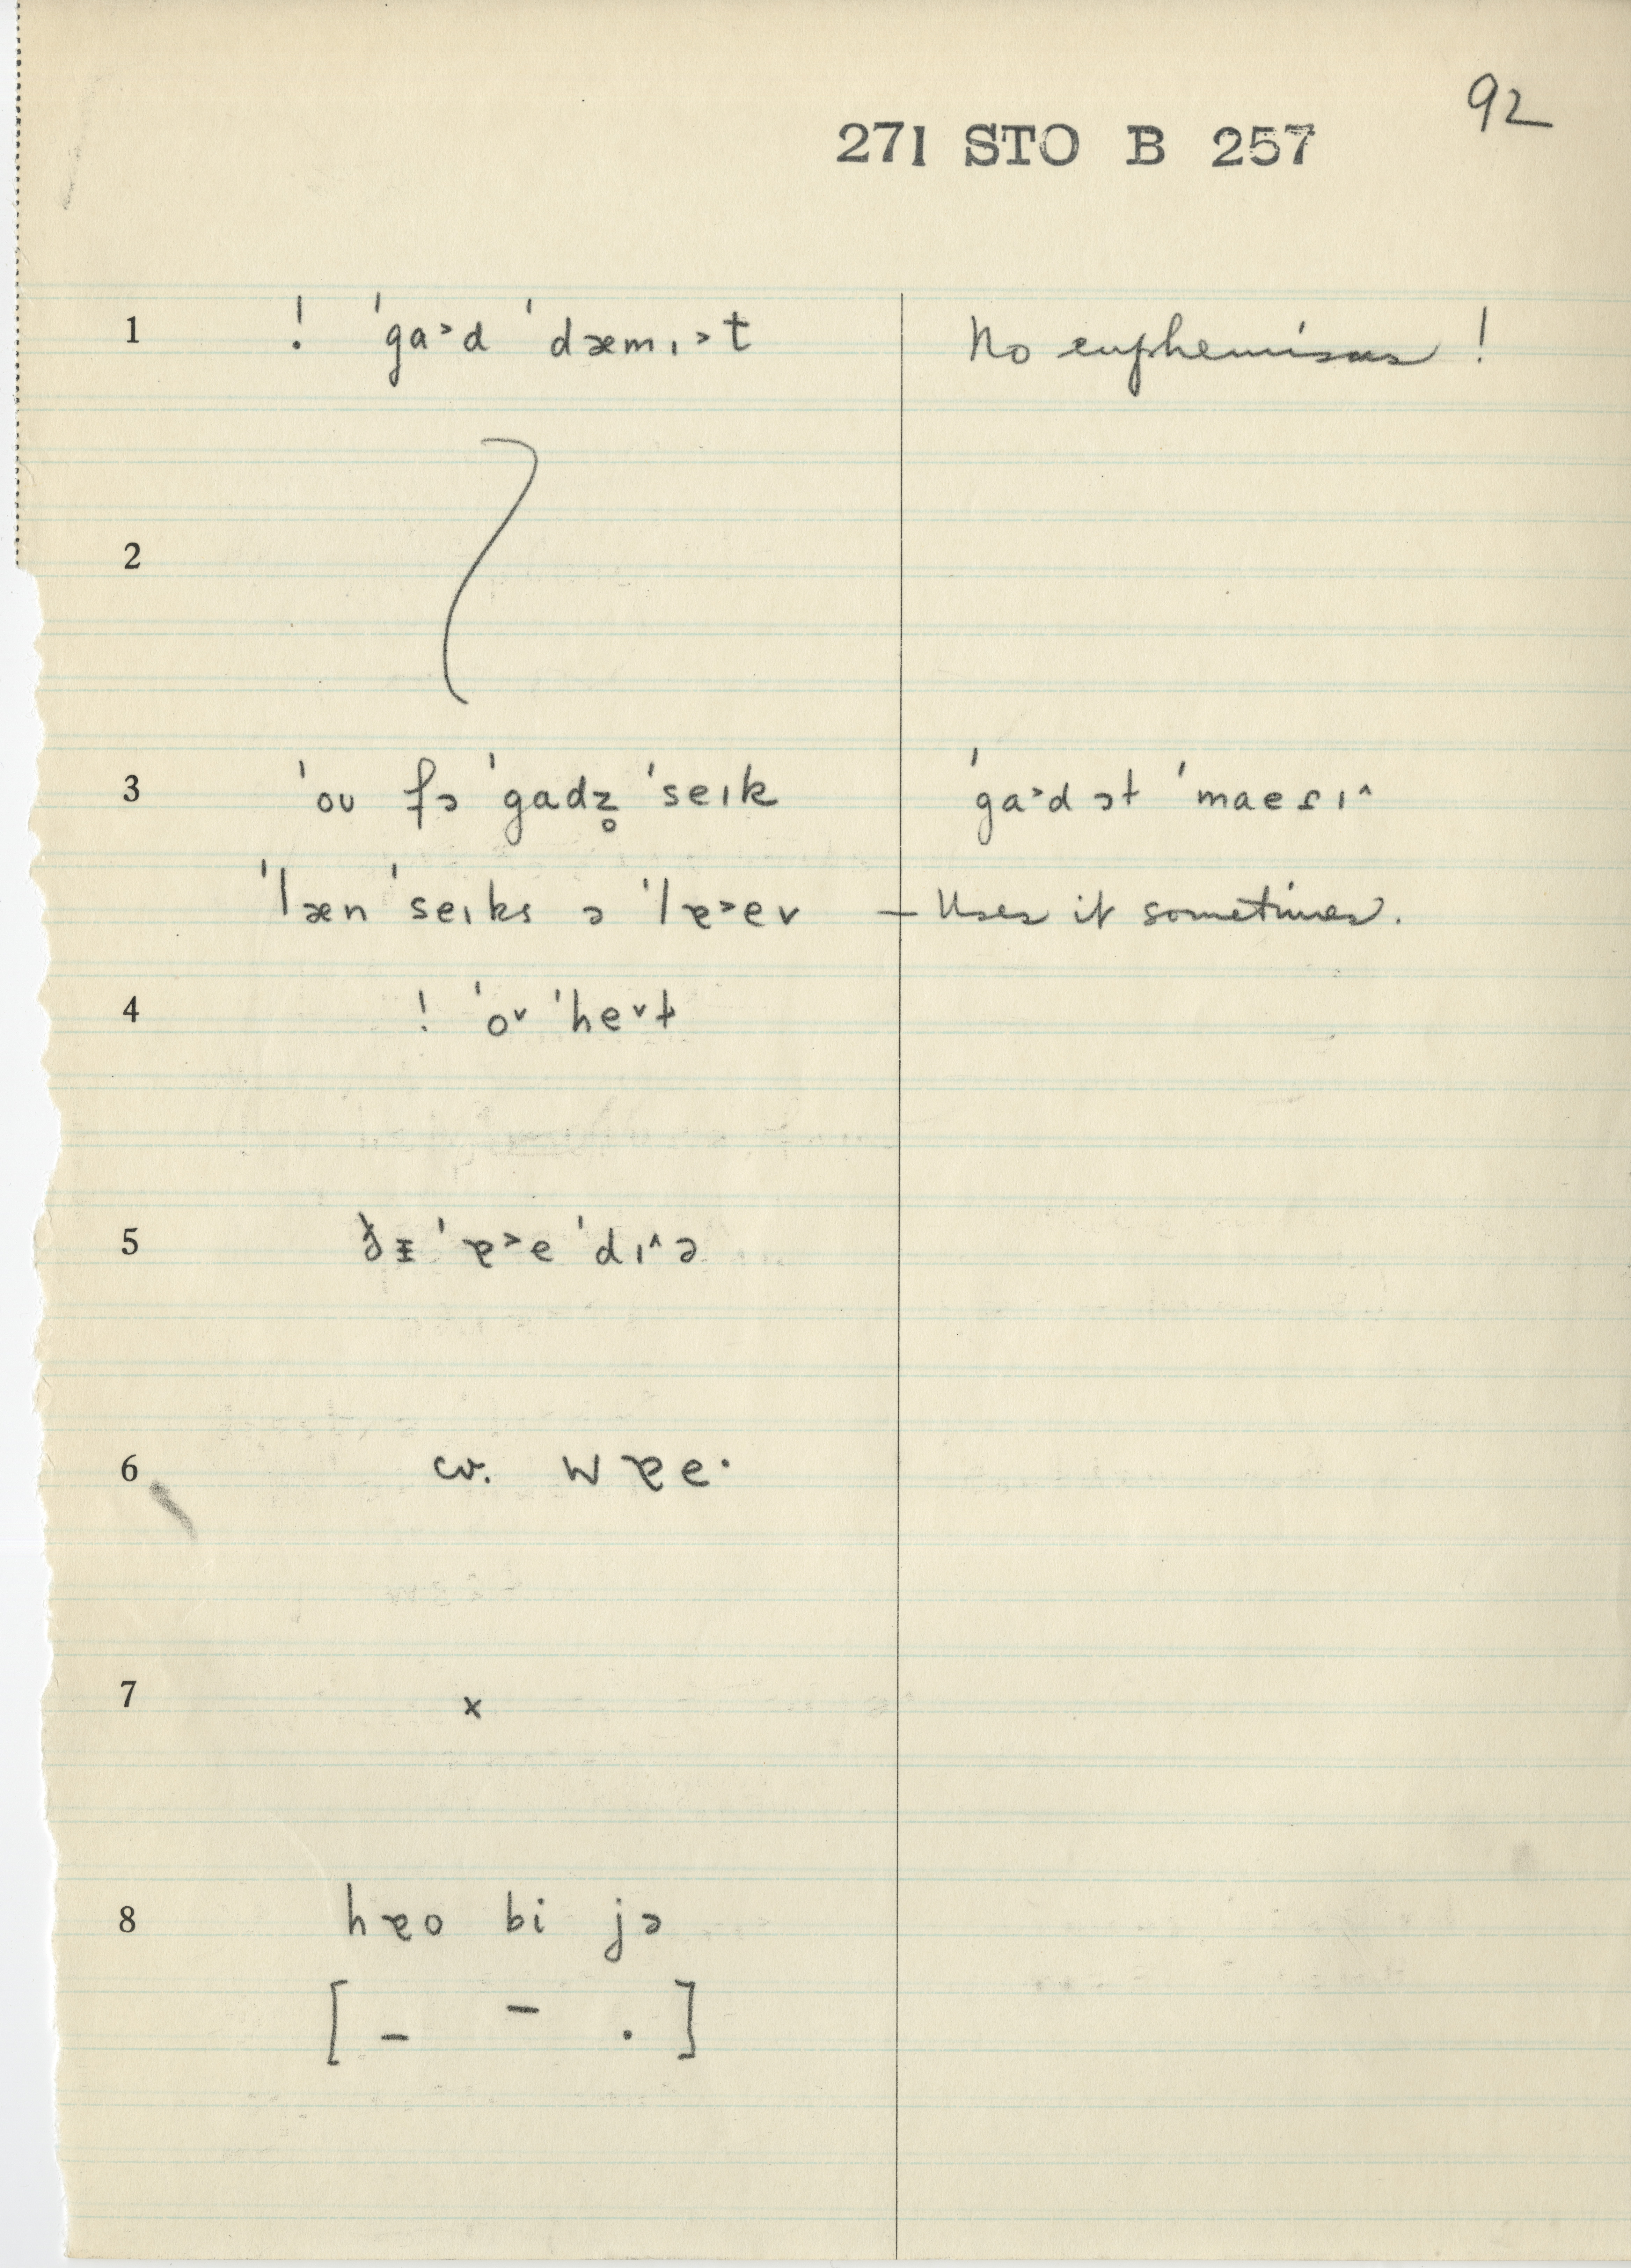 92
271 STO B 257
1 ! ˈga˃d ˈdæmɪ˃t No euphemisms !
2
3 ˈoʊ fə ˈgadz̥ ˈseɪk ˈga˃d ət ˈmaeɾɪ^
ˈlæn ˈseɪks ə ˈlɐ˃ev — Uses it sometimes.
4 ! ˈo˅ ˈhe˅t
5 ˈɐ˃e ˈdɪ^ə
6 cv. wɐe·
7 x
8 hɐo bi jə
[ _ – . ]